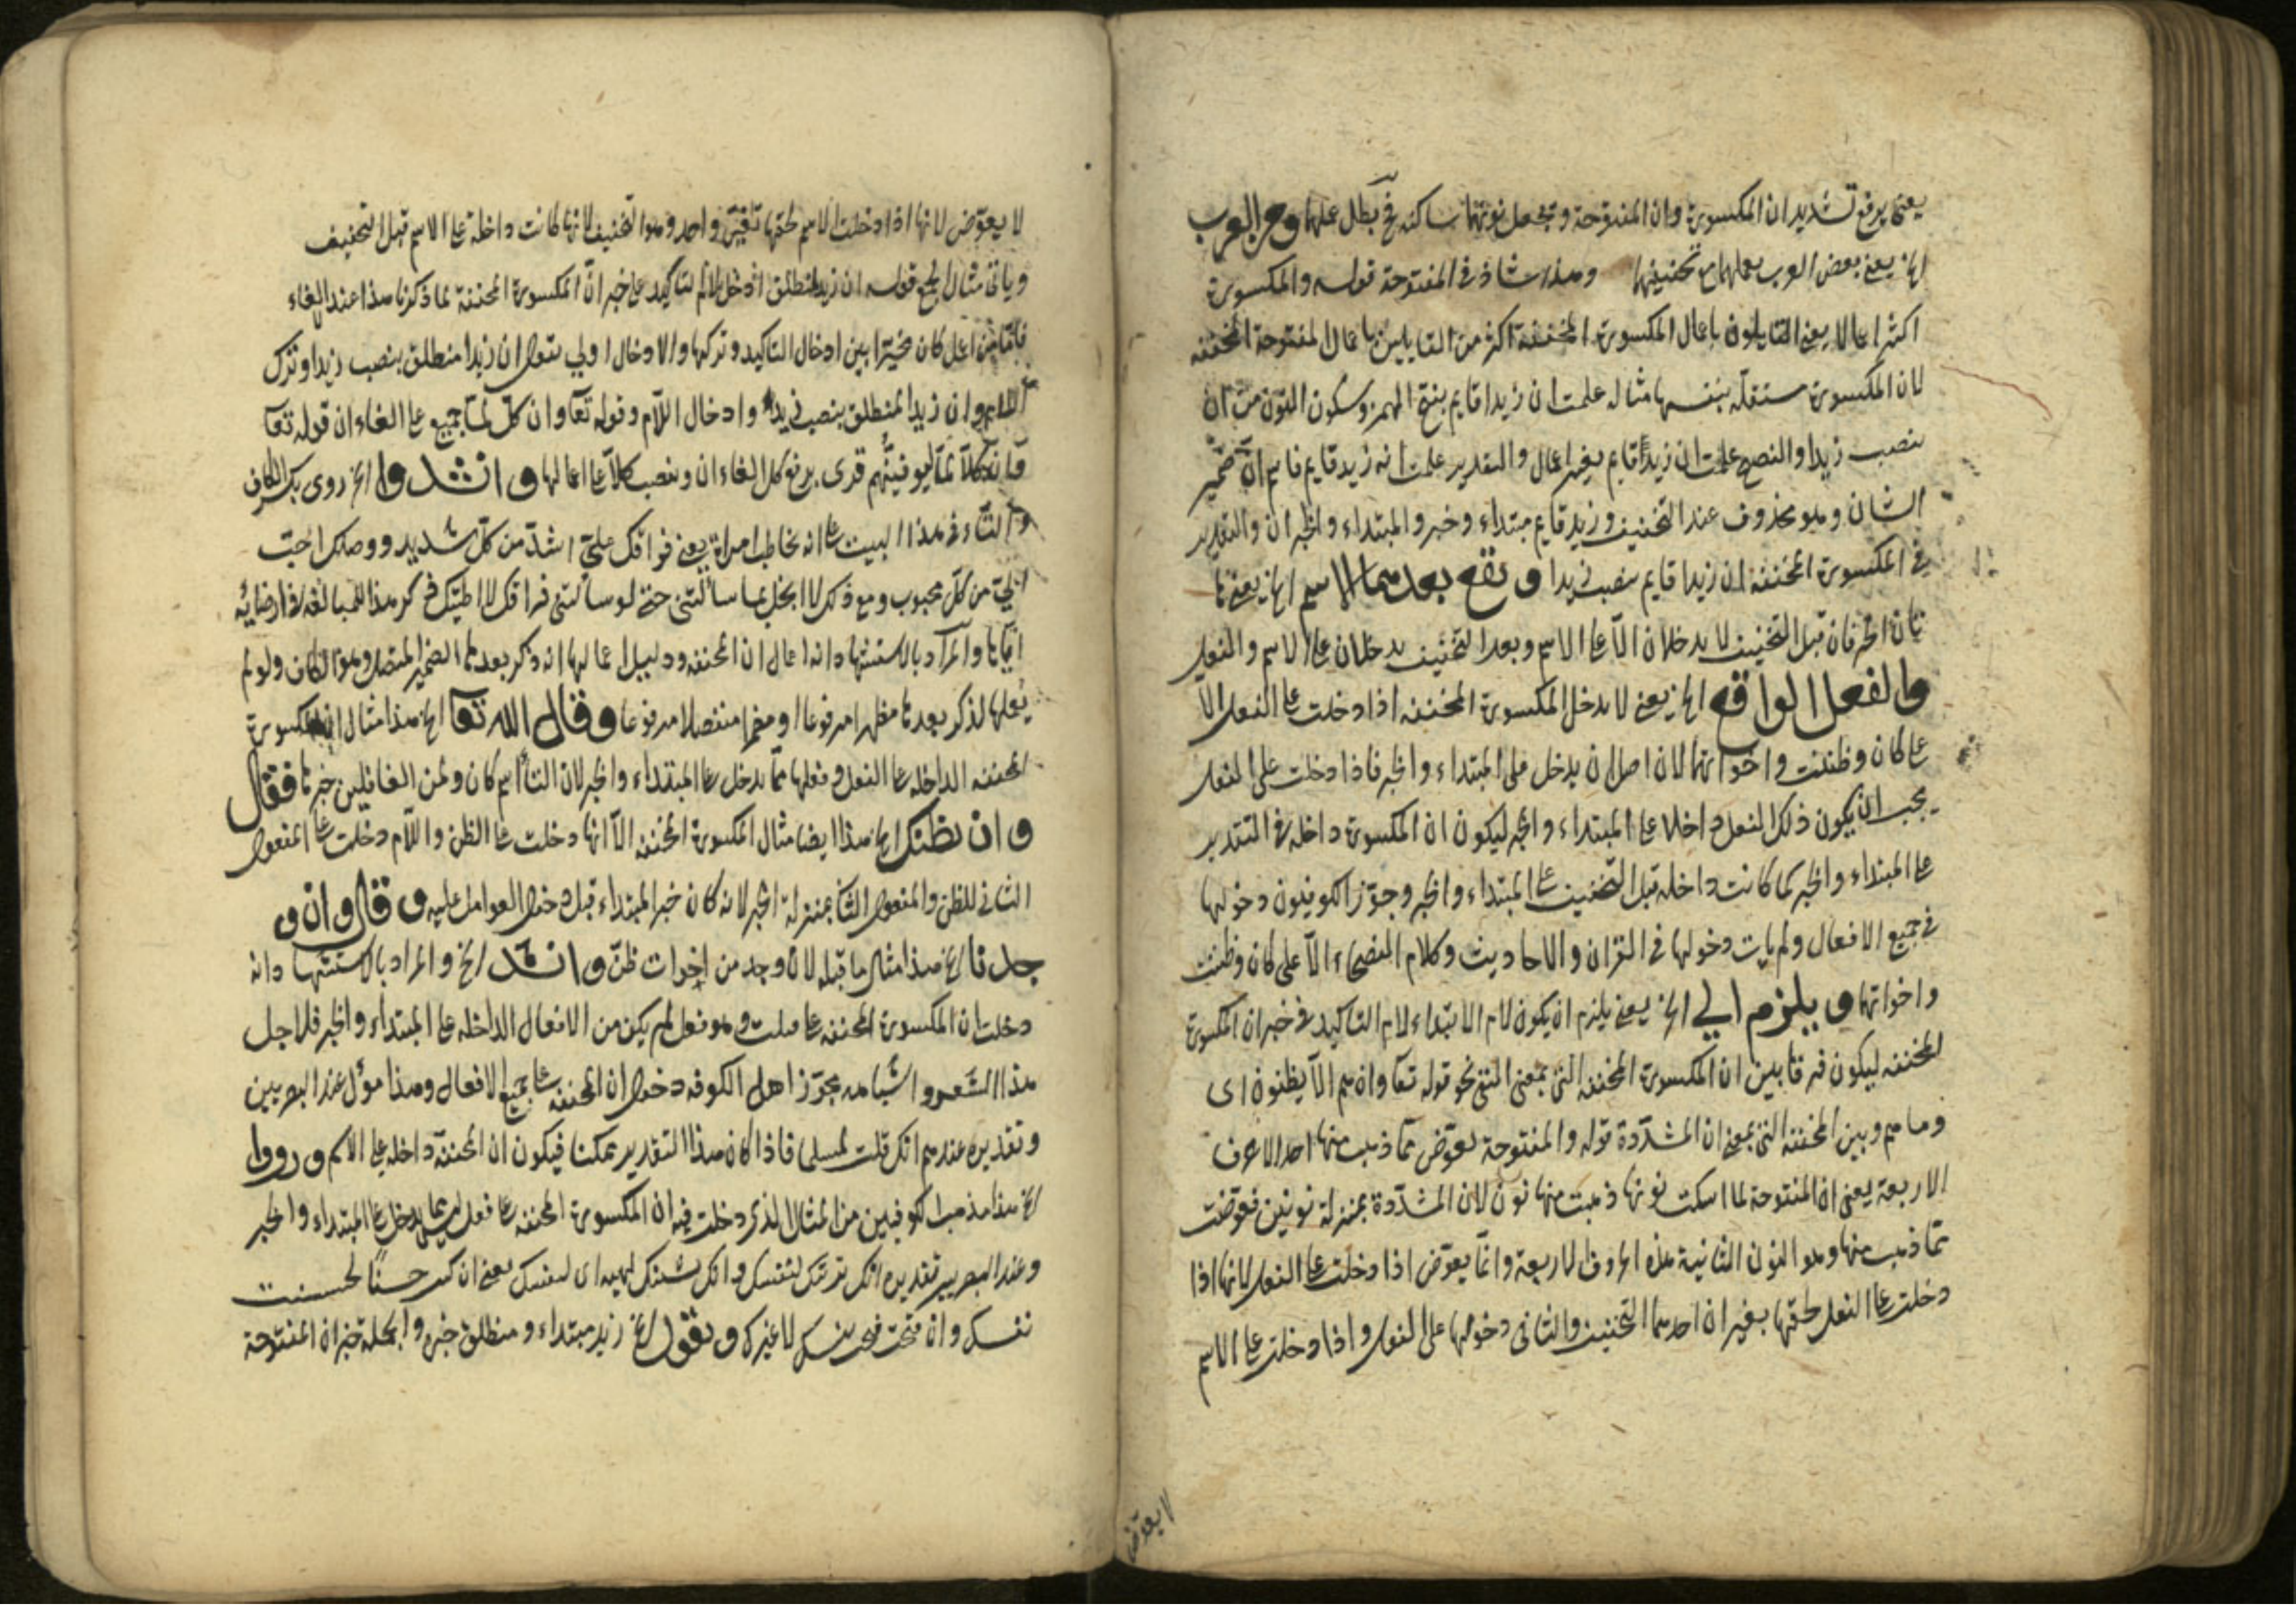 يعنى يرفع تشديد ان المكسورة وان المفتوحة وتجعل نونهما ساكنة فح بطل عملها ومن العرب
الخ يعنى بعض العرب يعملهما مع تخفيفهما وهذا شاذ فى المفتوحة قوله والمكسورة
اكثر اعمالا يعنى القايلون باعمال المكسورة المخففة اكثر من القايلين باعمال المفتوحة المخففة
لان المكسورة مستقلة بنفسها مثاله علمت ان زيدا قايم بفتح الهمزة وسكون النون من ان
بنصب زيدا والنصح علمت ان زيدا قايم بغير اعمال والتقدير علمت انه زيد قايم فاسم ان ضمير
الشان وهو محذوف عند التخفيف وزيد قايم مبتداء وخبر والمبتداء والخبر خبر ان والتقدير
فى المكسورة المخففة ان زيدا قايم بنصب زيدا ويقع بعدهما الاسم الخ يعنى لما
كان الحرفان قبل التخفيف لا يدخلان الا على الاسم وبعد التخفيف يدخلان على الاسم والفعل
والفعل الواقع الخ يعنى لا يدخل المكسورة المخففة اذا دخلت على الفعل الا
على كان وظننت واخواتهما لان اصل ان يدخل على المبتداء والخبر فاذا دخلت على الفعل
يجب ان يكون ذلك الفعل داخلا على المبتداء والخبر ليكون ان المكسورة داخلة فى التقدير
على المبتداء والخبر كما كانت داخلة قبل التخفيف على المبتداء والخبر وجوّز الكوفيون دخولها
فى جميع الافعال ولم يات دخولها فى القران والاحاديث وكلام الفصحاء الا على كان وظننت
واخواتها ويلزم الى الخ يعنى يلزم ان يكون لام الابتداء لام التاكيد فى خبر ان المكسورة
المخففة ليكون فرقا بين ان المكسورة المخففة التى بمعنى النفى نحو قوله تعا وان هم الا يظنون اى
وما هم وبين المخففة التى بمعنى ان المشدّدة قوله والمفتوحة يعوّض عمّا ذهب منها احد الاحرف
الاربعة يعنى ان المفتوحة لما اسكنت نونها ذهبت منها نون لان المشدّدة بمنزلة نونين فعوّضت
عمّا ذهب منها وهو النون الثانية هذه الحروف الاربعة وانّما يعوّض اذا دخلت على الفعل لانها اذا
دخلت على الفعل لحقها بغيران احدهما التخفيف والثانى دخولها على الفعل واذا دخلت على الاسم
لا يعوّض
لا يعوّض لانها اذا دخلت الاسم لحقها تغيير واحد وهو التخفيف لانها كانت داخلة على الاسم قبل التخفيف
وياتى مثال الجميع قوله ان زيد لمنطلق ادخل لام التاكيد على خبر ان المكسورة المخففة لما ذكرنا هذا عند الغاء
فامّا من اعمل كان مخيّرا بين ادخال التاكيد وتركها والادخال اولى يقول ان زيدا منطلق بنصب زيدا وترك
اللام وان زيدا لمنطلق بنصب زيدا وادخال اللام وقوله تعا وان كلّ لمّا جميع على الغاء ان قوله تعا
وان كلا لمّا ليوفينّهم قرى برفع كل الغاء ان وبنصب كلا على اعمالها وانشدوا الخ روى بكسر الكاف
والتاء فى هذا البيت على انه يخاطب امراة يعنى فراقك علىّ اشدّ من كل شديد ووصلك احبّ
الىّ من كل محبوب ومع ذلك لا ابخل بما سالتنى حتى لو سالتنى فراقك لاعطيتك ذكر هذا للمبالغة فى ارضائه
ايّاها والمراد بالاستشهاد انه اعمال ان المخففة ودليل اعمالها انه ذكر بعدها الضمير المتصل وهو الكاف ولو لم
يعملها لذكر بعدها مظهرا مرفوعا او مضمرا منفصلا مرفوعا وقال الله تعا الخ هذا مثال ان المكسورة
المخففة الداخلة على الفعل وفعلها ممّا يدخل على المبتداء والخبر لان التا اسم كان ولمن الغافلين خبرها فقال
وان نظنك الخ هذا ايضا مثال المكسورة المخففة الا انها دخلت على الظن واللام دخلت على المفعول
الثانى للظن والمفعول الثانى بمنزلة الخبر لانه كان خبر المبتداء قبل دخول العوامل عليه وقال وان و
جدنا الخ هذا مثال ما قبله لان وجد من اخوات ظنّ وانشد الخ والمراد بالاستشهاد انه
دخلت ان المكسورة المخففة على قتلت وهو فعل لم يكن من الافعال الداخلة على المبتداء والخبر فلاجل
هذا الشعر واشباهه يجوّز اهل الكوفة دخول ان المخففة على جميع الافعال وهذا مؤل عند البصريين
وتقديره عندهم انك قتلت لمسلما فاذا كان هذا التقدير ممكنا فيكون ان المخففة داخلة على الاسم ورووا
الخ هذا مذهب الكوفيين من المثال الذى دخلت فيه ان المكسورة المخففة على فعل لم يدخل على المبتداء والخبر
وعند البصريين تقديره انك تزينك لنفسك وانك يشينك لهيه اى لنفسك يعنى ان كنت حسنا لحسنت
نفسك وان قبحت قبحت نفسك لا غيرك ويقول الخ زيد مبتداء ومنطلق خبره والجملة خبر ان المفتوحة